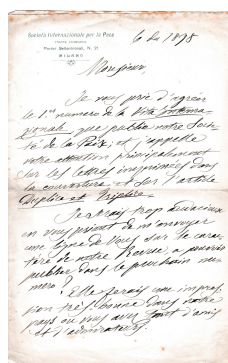 Società Internazionale per la Pace
Portici Settentrionali, N. 21
MILANO
6 du 1898
Monsieur,
Je vous prie d'agréer
le 1er numero de la Vita Internazionale
que publie notre Société
de la Paix, et j'appelle
votre attention principalement
sur les lettres imprimées dans
la couverture et sur l'article
Duplice et Triplice
Je serais trop audacieux
en vous priant de m'envoyer
une ligne de Vous sur le caractère
de notre Revue, a pouvoir
publier dans le prochain numero?
Elle ferais une impression
très bonne dans notre
pays où vous avez tant d'amis
et d'admirateurs.